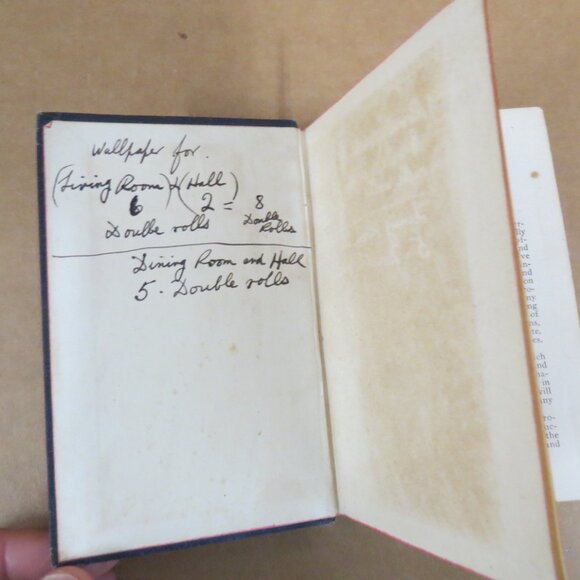 Wallpaper for.
(Living Room) & (Hall)
6 2 = 8
Double rolls Double Rolls
Dining Room and Hall
5. Double rolls